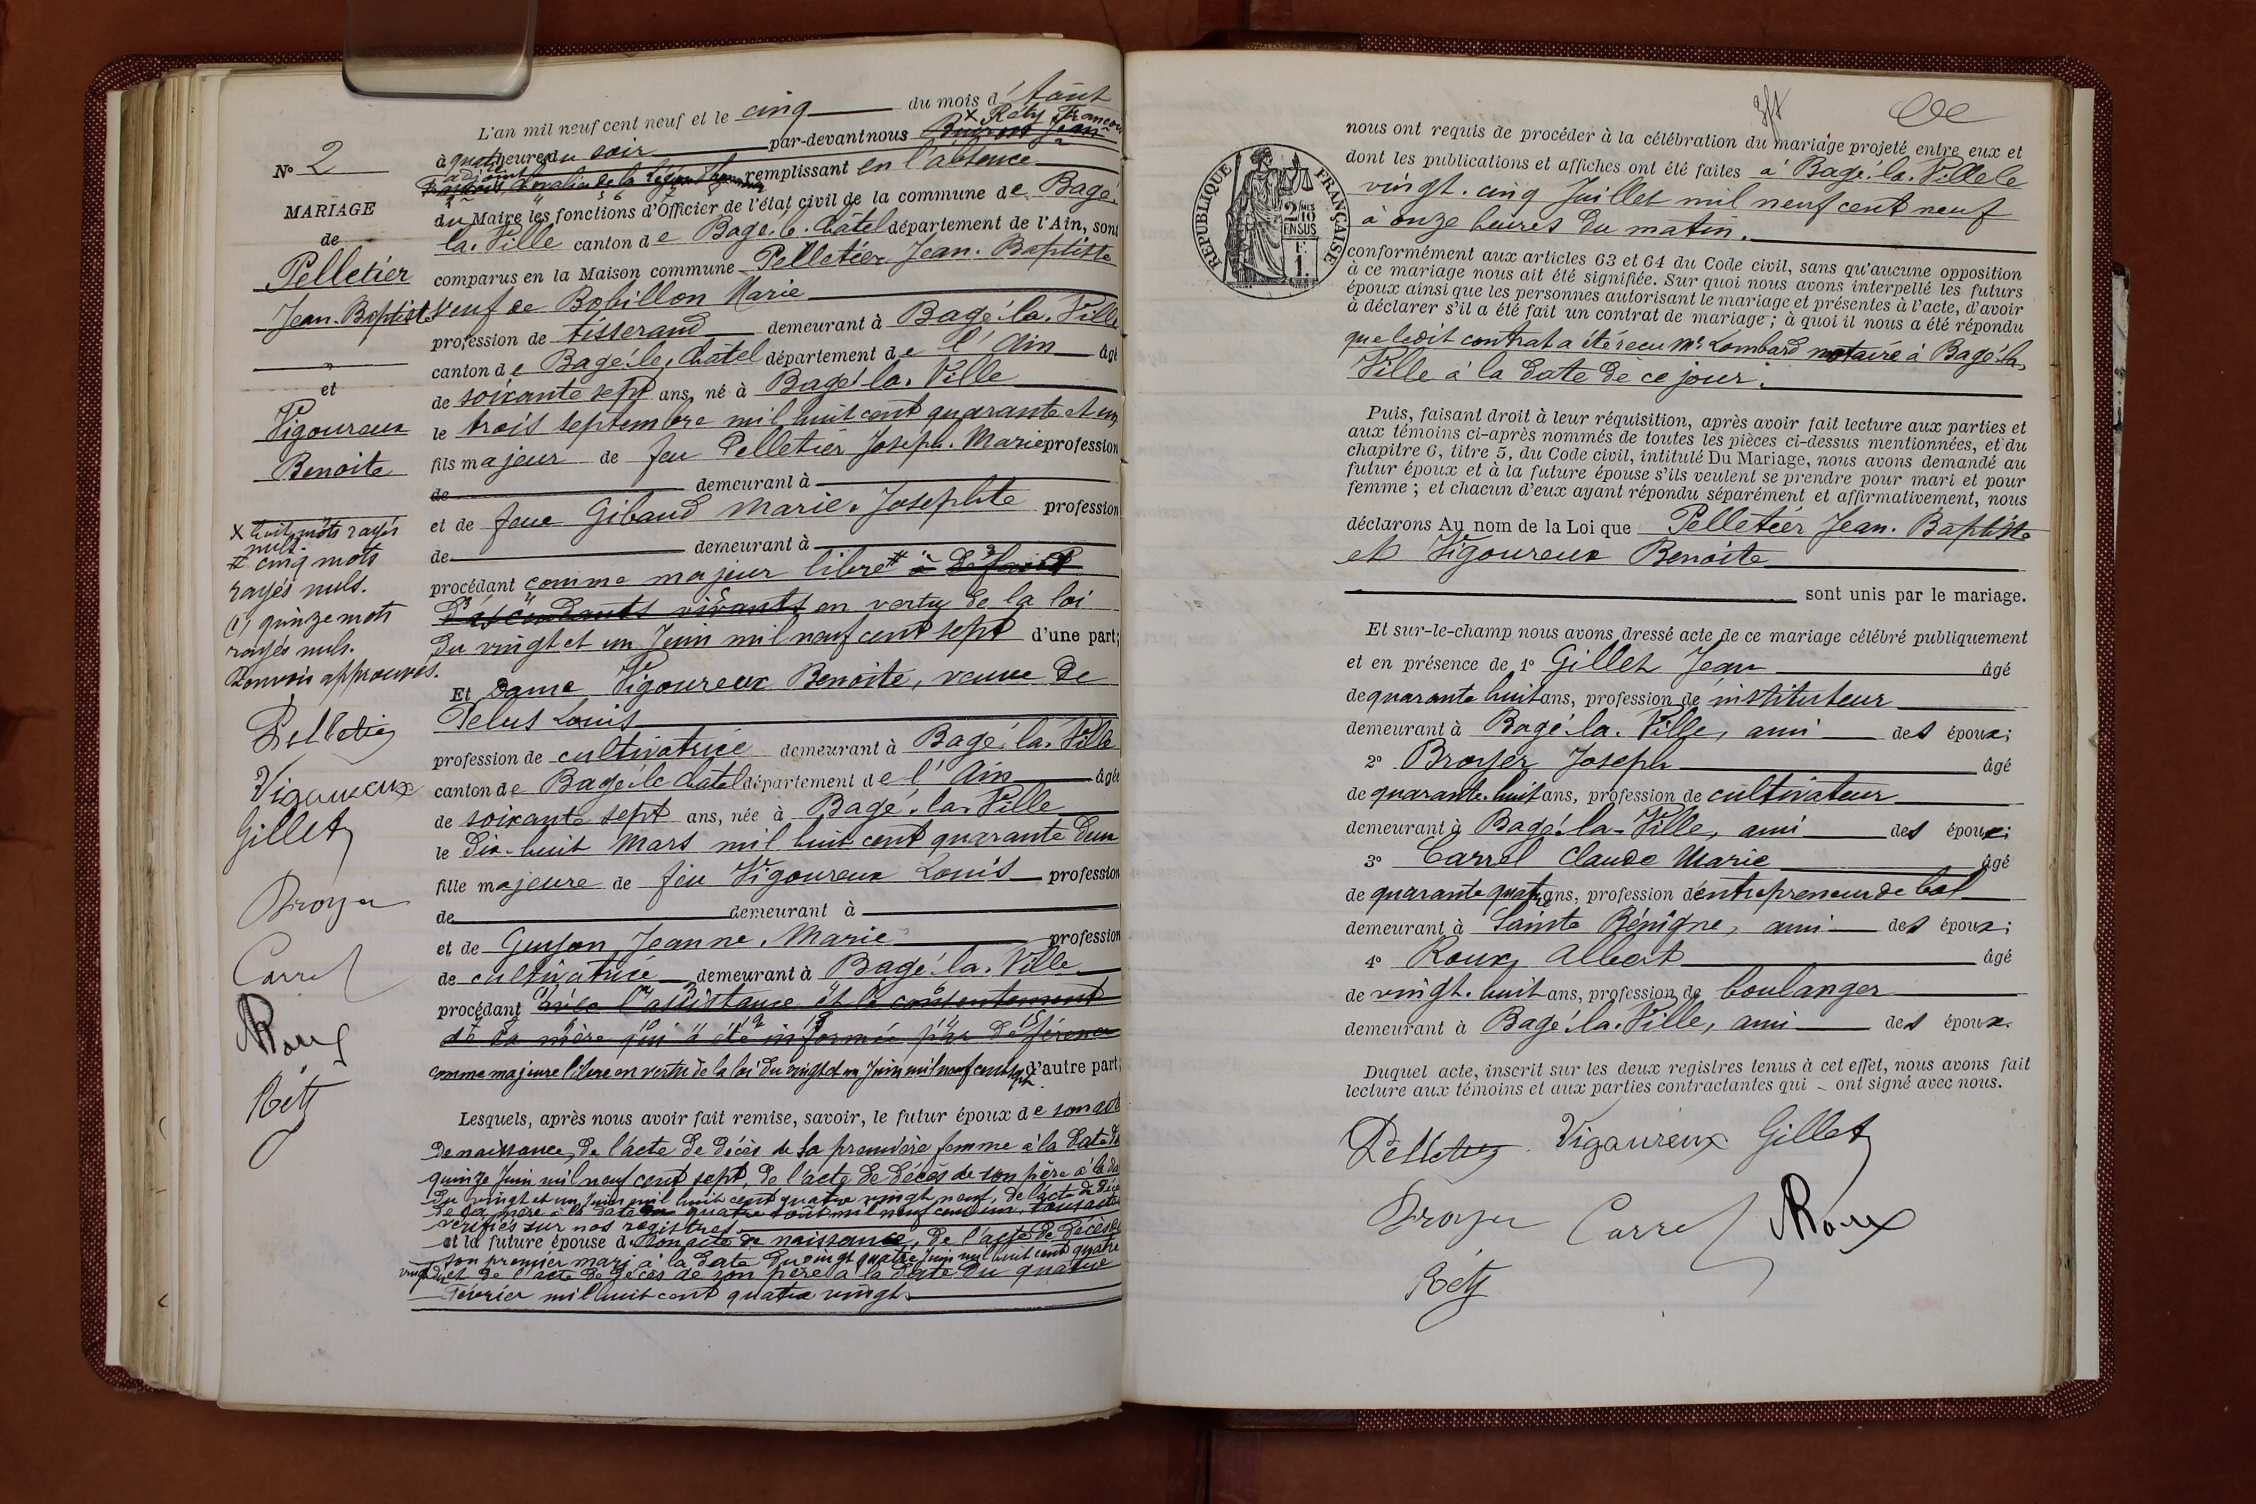 L'an mil neuf cent neuf et le cinq du mois d'Août
à quatre heures du soir par-devant nous Buiron Jean × Réty François
adjoint remplissant en l'absence
du Maire les fonctions d'Officier de l'état civil de la commune de Bagé-
la-Ville canton de Bagé-le-Châtel département de l'Ain, sont
comparus en la Maison commune Pelletier Jean-Baptiste
veuf de Bobillon Marie
profession de tisserand demeurant à Bagé-la-Ville
canton de Bagé-le-Châtel département de l'Ain âgé
de soixante sept ans, né à Bagé-la-Ville
le trois septembre mil huit cent quarante et un
fils majeur de feu Pelletier Joseph-Marie profession
de demeurant à
et de feue Gibaud Marie-Josephte profession
de demeurant à
procédant comme majeur libre # à défaut
d'ascendants vivants en vertu de la loi
du vingt et un Juin mil neuf cent sept d'une part;
Et Dame Vigoureux Benoite, veuve de
Pelus Louis
profession de cultivatrice demeurant à Bagé-la-Ville
canton de Bagé-le-Châtel département de l'Ain âgée
de soixante sept ans, née à Bagé-la-Ville
le dix-huit Mars mil huit cent quarante deux
fille majeure de feu Vigoureux Louis profession
de demeurant à
et de Guyon Jeanne-Marie profession
de cultivatrice demeurant à Bagé-la-Ville
procédant avec l'assistance et le consentement
de sa mère qui a été informée par déférence
comme majeure libre en vertu de la loi du vingt et un Juin mil neuf cent sept d'autre part;
Lesquels, après nous avoir fait remise, savoir, le futur époux de son acte
de naissance, de l'acte de décès de sa première femme à la date du
quinze Juin mil neuf cent sept, de l'acte de décès de son père à la date
du vingt et un Juin mil huit cent quatre vingt neuf, de l'acte de décès
de sa mère à la date du quatre Août mil neuf cent un, tous actes
vérifiés sur nos registres.
et la future épouse de son acte de naissance, de l'acte de décès de
son premier mari à la date du vingt quatre Juin mil huit cent quatre
et de l'acte de décès de son père à la date du quatre
Février mil huit cent quatre vingt.
N° 2
MARIAGE
de
Pelletier
Jean-Baptiste
et
Vigoureux
Benoite
× huit mots rayés
nuls.
# cinq mots
rayés nuls.
(1) quinze mots
rayés nuls.
Renvois approuvés.
Pelletier
Vigoureux
Gillet
Broyer
Carrel
Roux
Réty
RÉPUBLIQUE FRANÇAISE
2/10 EN SUS
F. 1.
nous ont requis de procéder à la célébration du mariage projeté entre eux et
dont les publications et affiches ont été faites à Bagé-la-Ville le
vingt-cinq Juillet mil neuf cent neuf
à onze heures du matin.
conformément aux articles 63 et 64 du Code civil, sans qu'aucune opposition
à ce mariage nous ait été signifiée. Sur quoi nous avons interpellé les futurs
époux ainsi que les personnes autorisant le mariage et présentes à l'acte, d'avoir
à déclarer s'il a été fait un contrat de mariage; à quoi il nous a été répondu
que ledit contrat a été recu Me Lombard notaire à Bagé-la-
Ville à la date de ce jour.
Puis, faisant droit à leur réquisition, après avoir fait lecture aux parties et
aux témoins ci-après nommés de toutes les pièces ci-dessus mentionnées, et du
chapitre 6, titre 5, du Code civil, intitulé Du Mariage, nous avons demandé au
futur époux et à la future épouse s'ils veulent se prendre pour mari et pour
femme; et chacun d'eux ayant répondu séparément et affirmativement, nous
déclarons Au nom de la Loi que Pelletier Jean-Baptiste
et Vigoureux Benoite
sont unis par le mariage.
Et sur-le-champ nous avons dressé acte de ce mariage célébré publiquement
et en présence de 1° Gillet Jean âgé
de quarante huit ans, profession de instituteur
demeurant à Bagé-la-Ville, ami des époux;
2° Broyer Joseph âgé
de quarante-huit ans, profession de cultivateur
demeurant à Bagé-la-Ville, ami des époux;
3° Carrel Claude Marie âgé
de quarante quatre ans, profession d'entrepreneur de bal
demeurant à Sainte Bénigne, ami des époux;
4° Roux Albert âgé
de vingt-huit ans, profession de boulanger
demeurant à Bagé-la-Ville, ami des époux.
Duquel acte, inscrit sur les deux registres tenus à cet effet, nous avons fait
lecture aux témoins et aux parties contractantes qui ont signé avec nous.
Pelletier Vigoureux Gillet
Broyer Carrel Roux
Réty